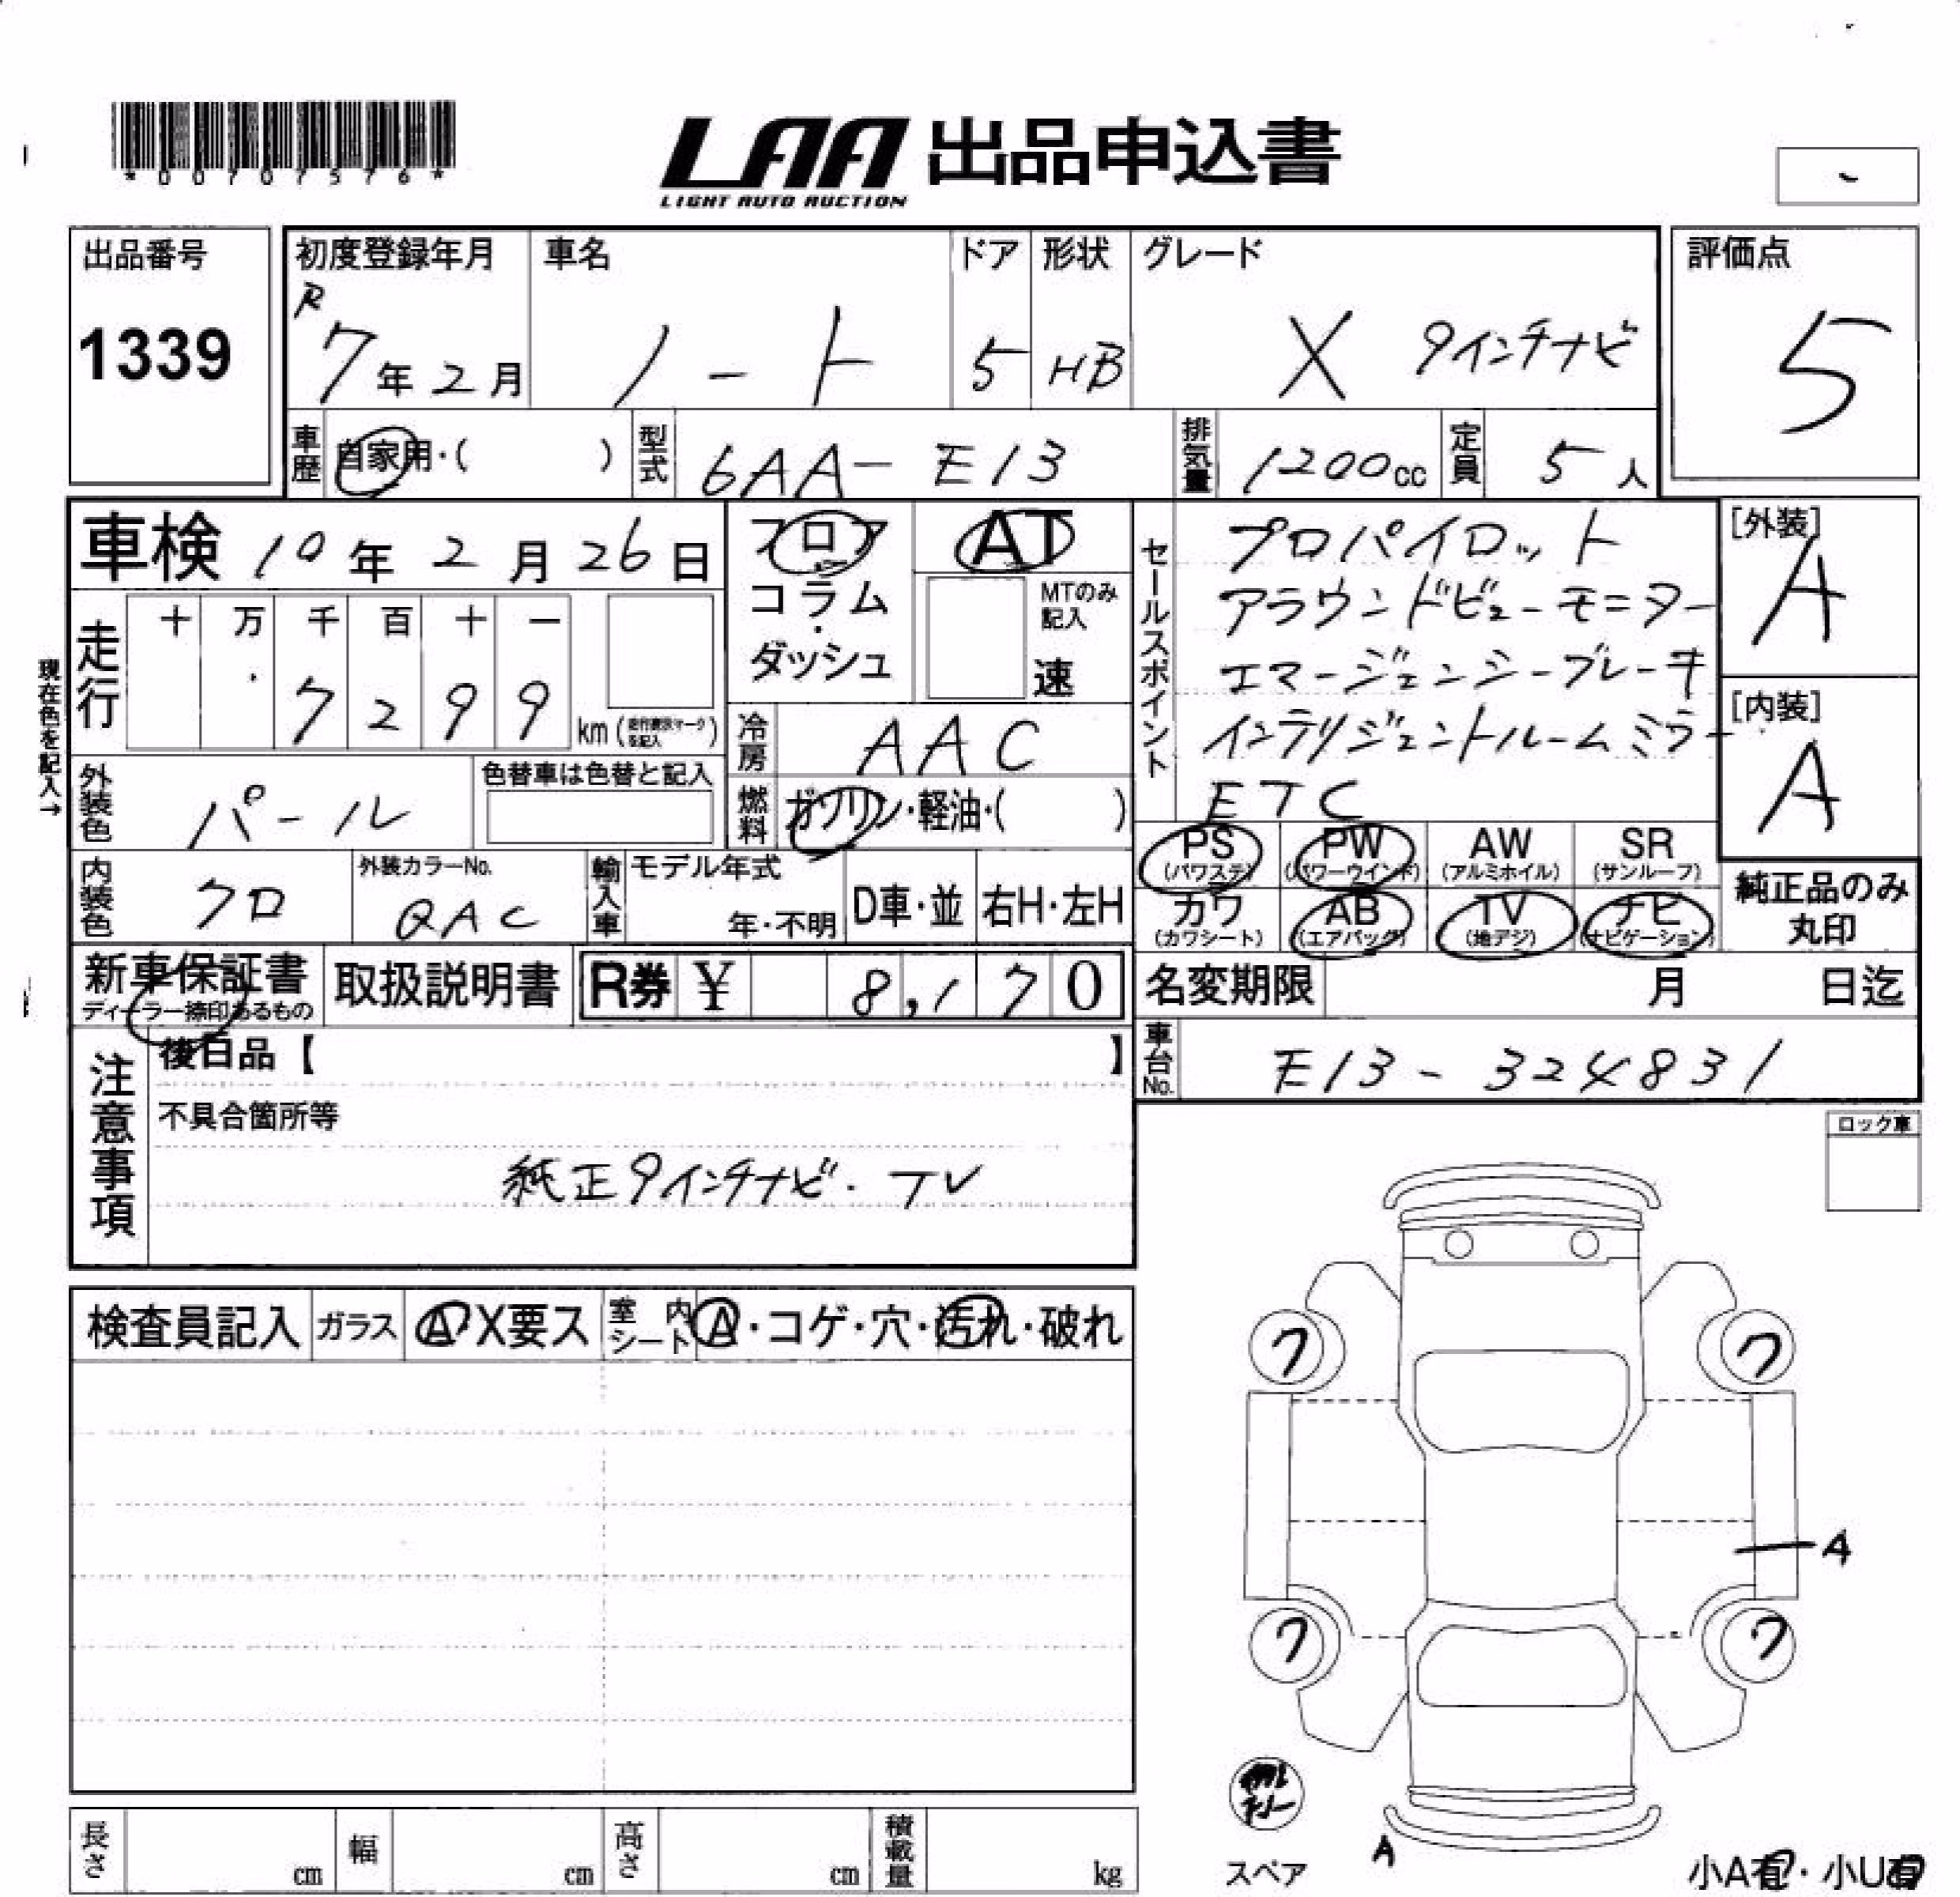 *00707576*
LAA 出品申込書
LIGHT AUTO AUCTION
出品番号
1339
初度登録年月
R 7年2月
車名
ノート
ドア
5
形状
HB
グレード
X 9インチナビ
評価点
5
車歴
自家用・( )
型式
6AA-E13
排気量
1200cc
定員
5人
車検 10年2月26日
フロア
コラム・
ダッシュ
AT
MTのみ記入
速
セールスポイント
プロパイロット
アラウンドビューモニター
エマージェンシーブレーキ
インテリジェントルームミラー
ETC
[外装]
A
[内装]
A
現在色を記入→
走行
十 万 千 百 十 一
7 2 9 9 km
冷房
AAC
外装色
パール
色替車は色替と記入
燃料
ガソリン・軽油・( )
PS (パワステ)
PW (パワーウインド)
AW (アルミホイル)
SR (サンルーフ)
カワ (カワシート)
AB (エアバッグ)
TV (地デジ)
ナビ (ナビゲーション)
純正品のみ
丸印
内装色
クロ
外装カラーNo.
QAC
輸入車
モデル年式
年・不明
D車・並
右H・左H
新車保証書
ディーラー捺印あるもの
取扱説明書
R券 ¥ 8,170
名変期限 月 日迄
車台No.
E13-324831
注意事項
後日品【 】
不具合箇所等
純正9インチナビ・TV
ロック車
検査員記入
ガラス
A・X要ス
室内シート
A・コゲ・穴・汚れ・破れ
フ
フ
フ
フ
A
A
スペア
小A有・小U有
長さ cm
幅 cm
高さ cm
積載量 kg